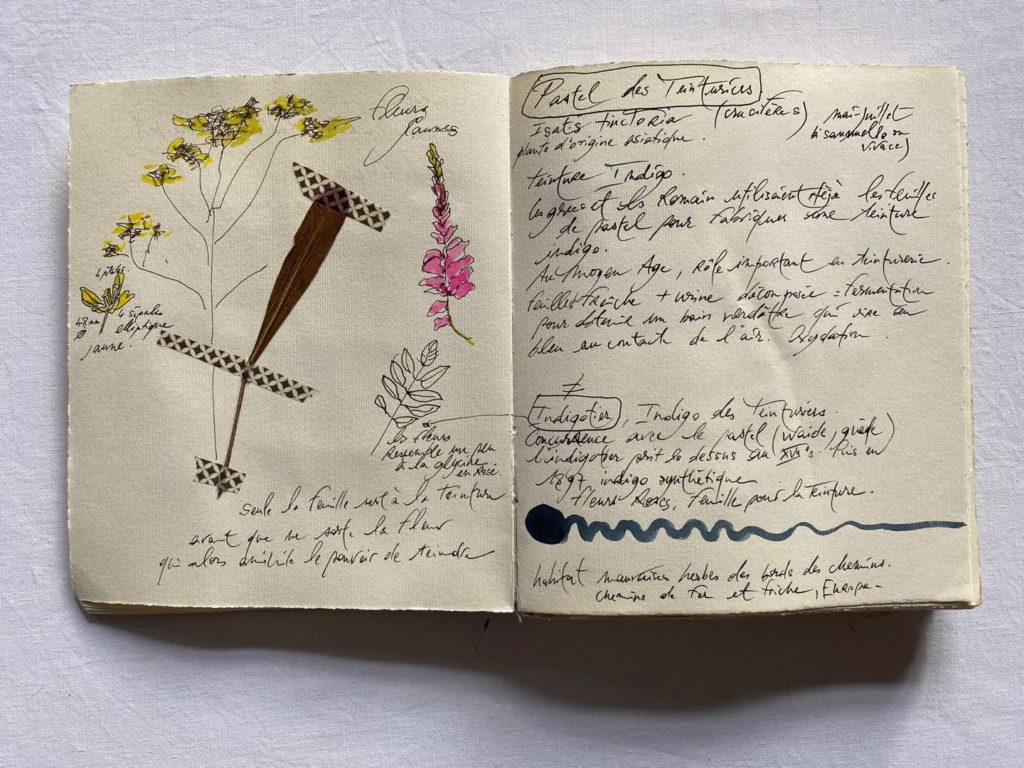 fleurs
jaunes
4 pétales
4 sépales
elliptique
jaune
les fleurs
ressemble un peu
à la glycine
en Rose
seule la feuille sert à la teinture
avant que ne sorte la fleur
qui alors annihile le pouvoir de teindre
Pastel des Teinturiers
Isatis tinctoria (crucifères) mai-juillet
plante d'origine asiatique. bisannuelle ou
vivace)
teinture Indigo.
les grecs et les Romain utilisaient déjà les feuilles
de pastel pour fabriquer une teinture
indigo.
Au Moyen Age, rôle important en teinturerie.
feuilles fraîche + urine décomposée = fermentation
pour obtenir un bain verdâtre qui vire au
bleu au contact de l'air. Oxydation.
≠
Indigotier, Indigo des Teinturiers.
Concurrence avec le pastel (waide, guède)
l'indigotier prit le dessus au XVIIe s. Puis en
1897 indigo synthétique
fleurs Roses, feuille pour la teinture.
habitat mauvaises herbes des bords des chemins.
chemins de fer et friche, Europe-